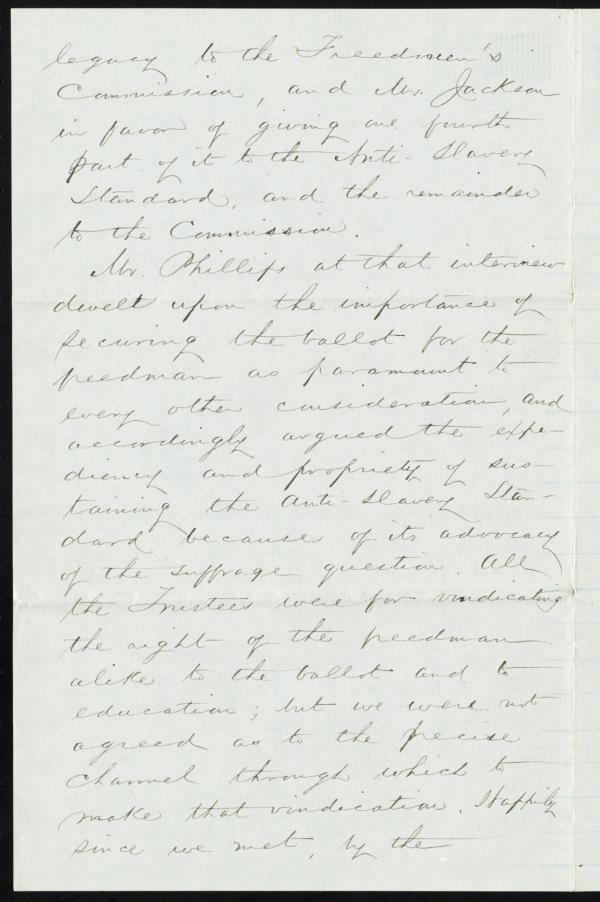 legacy to the Freedmen's
Commission, and Mr. Jackson
in favor of giving one fourth
part of it to the Anti-Slavery
Standard, and the remainder
to the Commission.
Mr. Phillips at that interview
dwelt upon the importance of
securing the ballot for the
freedman as paramount to
every other consideration, and
accordingly argued the expe-
diency and propriety of sus-
taining the Anti-Slavery Stan-
dard because of its advocacy
of the suffrage question. All
the Trustees were for vindicating
the right of the freedman
alike to the ballot and to
education; but we were not
agreed as to the precise
channel through which to
make that vindication. Happily
since we met, by the